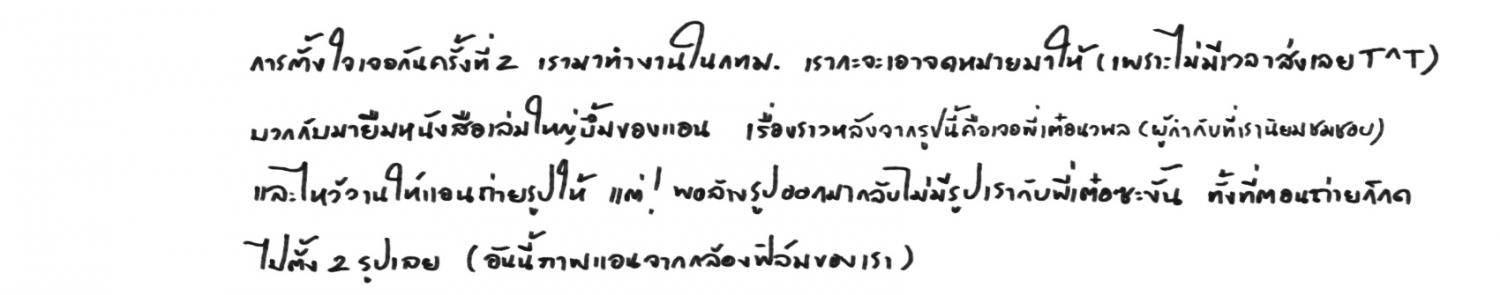 การตั้งใจเจอกันครั้งที่ 2 เรามาทำงานในกทม. เรากะจะเอาจดหมายมาให้ (เพราะไม่มีเวลาส่งเลย T^T)
บวกกับมายืมหนังสือเล่มใหญ่บึ้มของแอน เรื่องราวหลังจากรูปนี้คือเจอพี่เต๋อนวพล (ผู้กำกับที่เรานิยมชมชอบ)
และไหว้วานให้แอนถ่ายรูปให้ แต่! พอล้างรูปออกมากลับไม่มีรูปเรากับพี่เต๋อซะงั้น ทั้งที่ตอนถ่ายก็กด
ไปตั้ง 2 รูปเลย (อันนี้ภาพแอนจากกล้องฟิล์มของเรา)